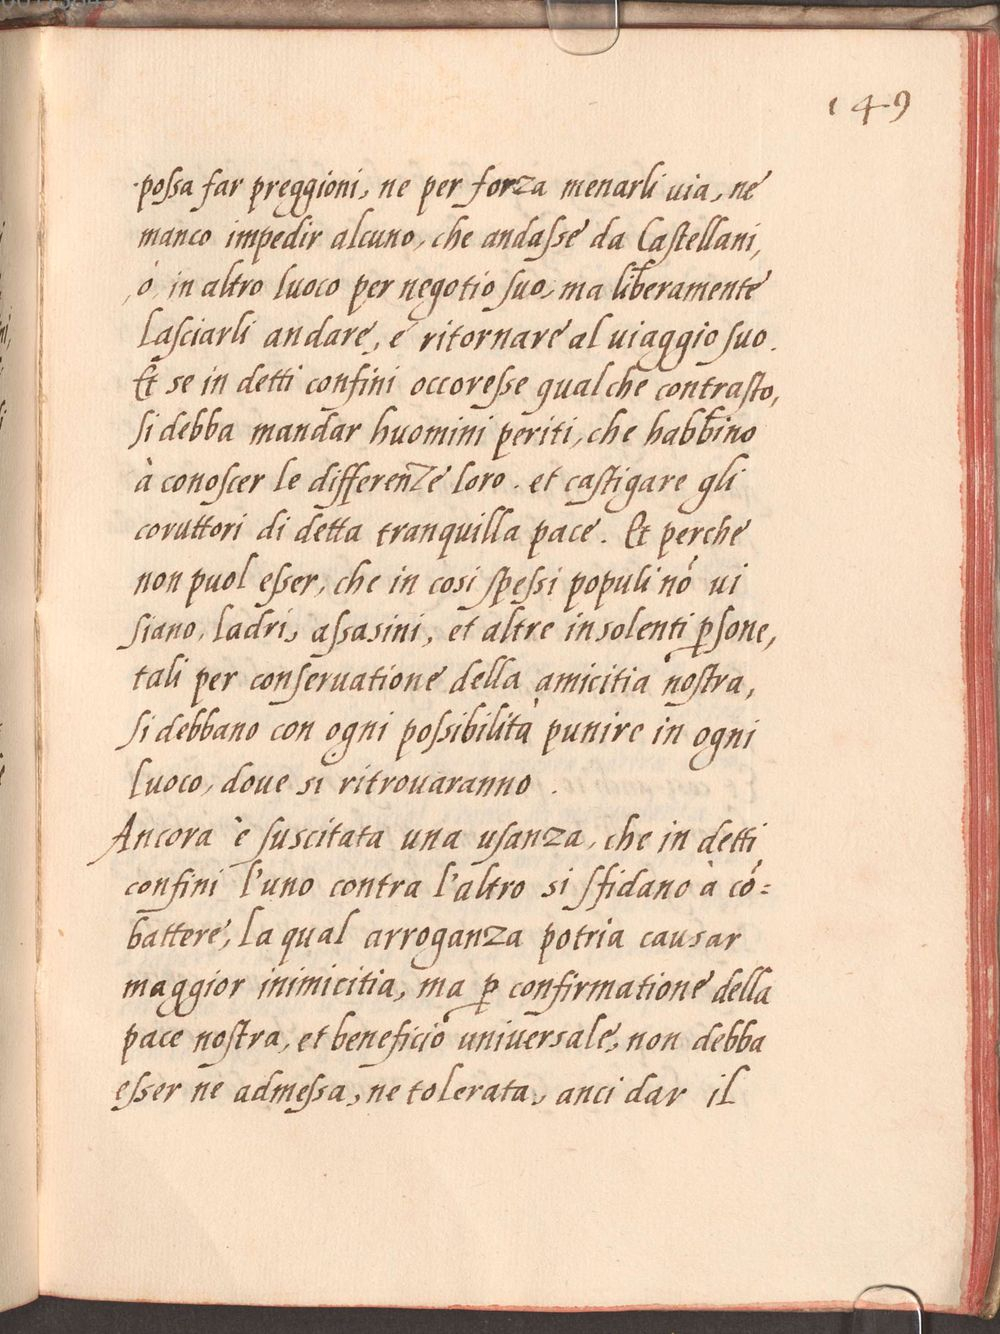 149
possa far preggioni, ne per forza menarli uia, ne
manco impedir alcuno, che andasse da Castellani,
ò in altro luoco per negotio suo, ma liberamente
lasciarli andare, e ritornare al uiaggio suo.
Et se in detti confini occoresse qualche contrasto,
si debba mandar huomini periti, che habbino
à conoscer le differenze loro. et castigare gli
coruttori di detta tranquilla pace. Et perche
non puol esser, che in cosi spessi populi nõ ui
siano, ladri, assasini, et altre insolenti ꝑsone,
tali per conseruatione della amicitia nostra,
si debbano con ogni possibilità punire in ogni
luoco, doue si ritrouaranno.
Ancora è suscitata una usanza, che in detti
confini l'uno contra l'altro si sfidano à cõ=
battere, la qual arroganza potria causar
maggior inimicitia, ma ꝑ confirmatione della
pace nostra, et beneficio uniuersale, non debba
esser ne admessa, ne tolerata, anci dar il